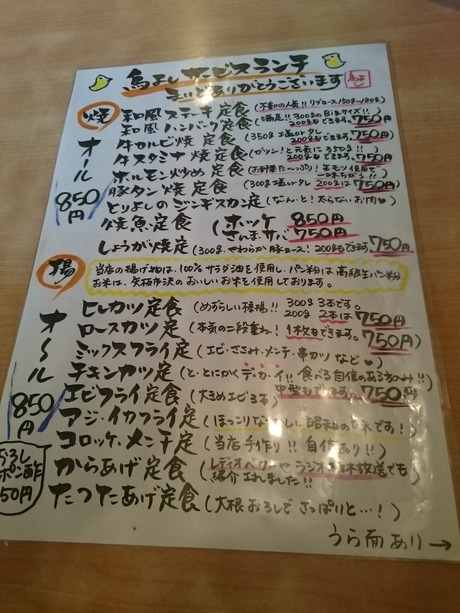 鳥よしサービスランチ
まいどありがとうございます
焼
オール850円
和風ステーキ定食(不動の人気!! リブロース150g〜180g)
和風ハンバーグ定食(満足!! 300gのBigサイズ!! 200gもできます。750円
牛カルビ焼定食(350g 塩orタレ 200gもできます。750円
牛スタミナ焼定食(ガツン!と元気に350g!! 200gもできます。750円
ホルモン炒め定食(お野菜た〜ぷり!生モツ使用で一味ちがう!!)
豚タン焼定食(300g 塩orタレ 200gは750円
とりよしのジンギスカン定(なんと!太らないお肉♥)
焼魚定食(ホッケ 850円
さんま・サバ 750円
しょうが焼定(300g、やわらか豚ロース!200gもできます。750円
揚
当店の揚げ物は、100%サラダ油を使用し、パン粉は高級生パン粉
お米は、矢板市沢のおいしいお米を使用しております。
オール850円
ヒレカツ定食(めずらしい棒揚!! 300g 3本です。200g 2本は750円
ロースカツ定(本気の二段重ね!1枚もできます。750円
ミックスフライ定(エビ・ささみ・メンチ・串カツなど♥)
チキンカツ定(と・とにかくデ・カ・イ!!食べる自信のある方のみ!!)
エビフライ定食(大きめエビ3本) 中型もできます。750円
アジ・イカフライ定(ほっこりなつかしい昭和の味です!)
コロッケ、メンチ定(当店手作り!!自信あり!!)
からあげ定食(レディオベリーやラジオ日本放送でも紹介されました!!
たつたあげ定食(大根おろしでさっぱりと…!)
おろしポン酢50円
うら面あり→